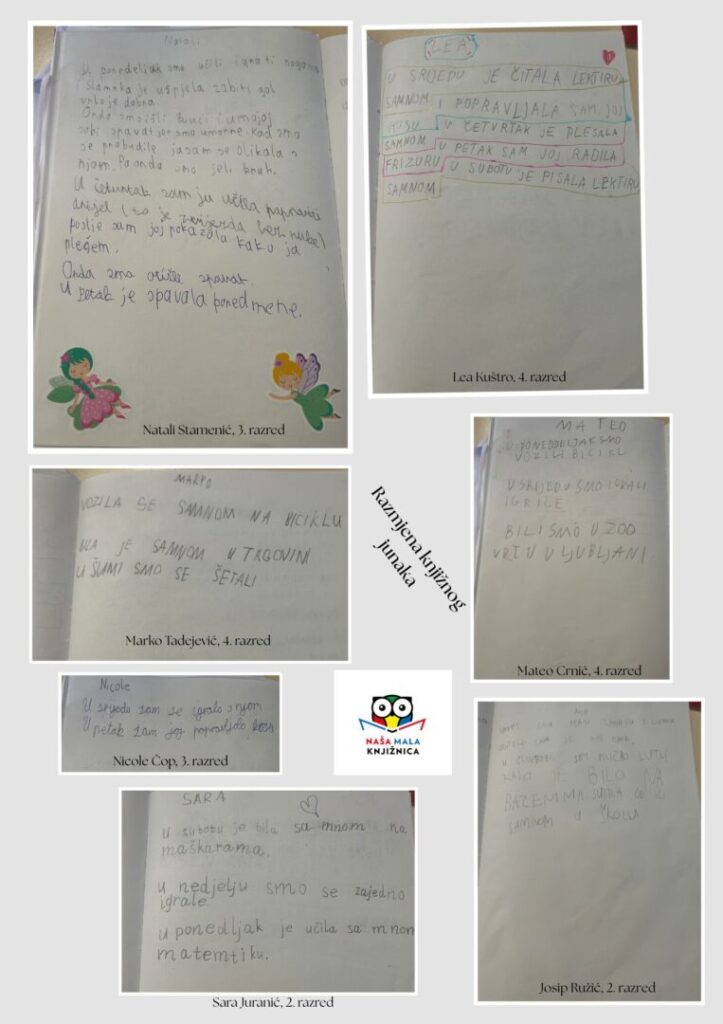 Natali
U ponedeljak smo učili igrati nogome
i Slamnka je uspjela zabiti gol
vrlo je dobra.
Onda smo išli kući i u mojoj
sobi spavat jer smo umorne. Kad smo
se probudile ja sam se slikala s
njom. Pa onda smo jeli kruh.
U četvrtak sam ju učila popraviti
poslje sam joj pokazala kako ja
plešem.
Onda smo otišle spavat.
U Petak je spavala pored mene.
Natali Stamenić, 3. razred
LEA
U SRIJEDU JE ČITALA LEKTIRU
SAMNOM I POPRAVLJALA SAM JOJ
KOSU U ČETVRTAK JE PLESALA
SAMNOM U PETAK SAM JOJ RADILA
FRIZURU U SUBOTU JE PISALA LEKTIRU
SAMNOM
Lea Kuštro, 4. razred
MARKO
VOZILA SE SAMNOM NA BICIKLU
BILA JE SAMNOM U TRGOVINI
U ŠUMI SMO SE ŠETALI
Marko Tadejević, 4. razred
Razmjena knjižnog
junaka
MATEO
U PONEDJELJAK SMO
VOZILI BICIKL
U SRIJEDU SMO IGRALI
IGRICE
BILI SMO U ZOO
VRTU U LJUBLJANI.
Mateo Crnić, 4. razred
Nicole
U srijedu sam se igrala s njom
U petak sam joj popravljala kosu
Nicole Čop, 3. razred
NAŠA MALA
KNJIŽNICA
SARA
U subotu je bila sa mnom na
maškarama.
U nedjelju smo se zajedno
igrale.
U ponedljak je učila sa mnom
matemtiku.
Sara Juranić, 2. razred
U ČETVRTAK SAM LUTU
KAKO JE BILO NA
BAZENIMA SUTRA ĆE IĆI
SAMNOM U ŠKOLU
Josip Ružić, 2. razred